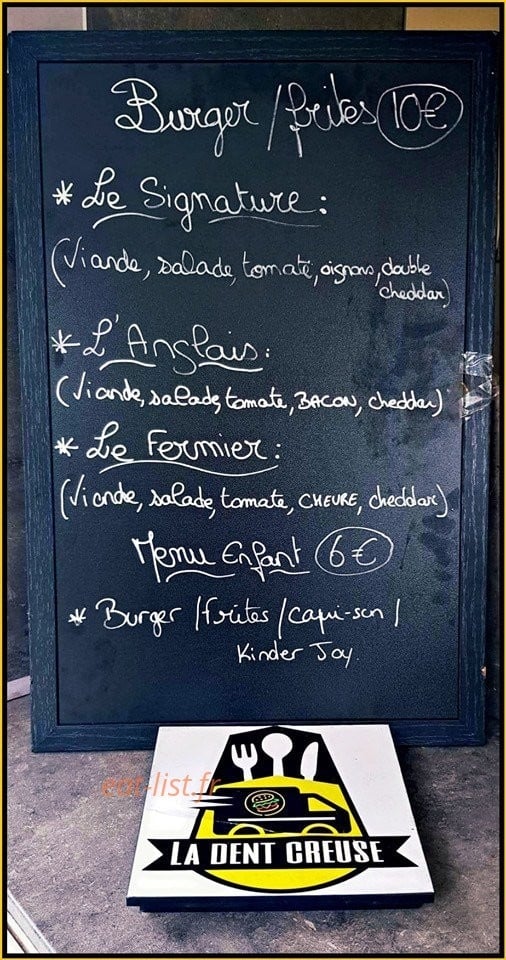 Burger / frites 10€
* Le Signature :
(Viande, salade, tomate, oignons, double
cheddar)
* L'Anglais :
(Viande, salade, tomate, BACON, cheddar)
* Le Fermier :
(Viande, salade, tomate, CHEVRE, cheddar)
Menu Enfant 6€
* Burger / frites / capri-sun /
Kinder Joy.
eat-list.fr
LA DENT CREUSE